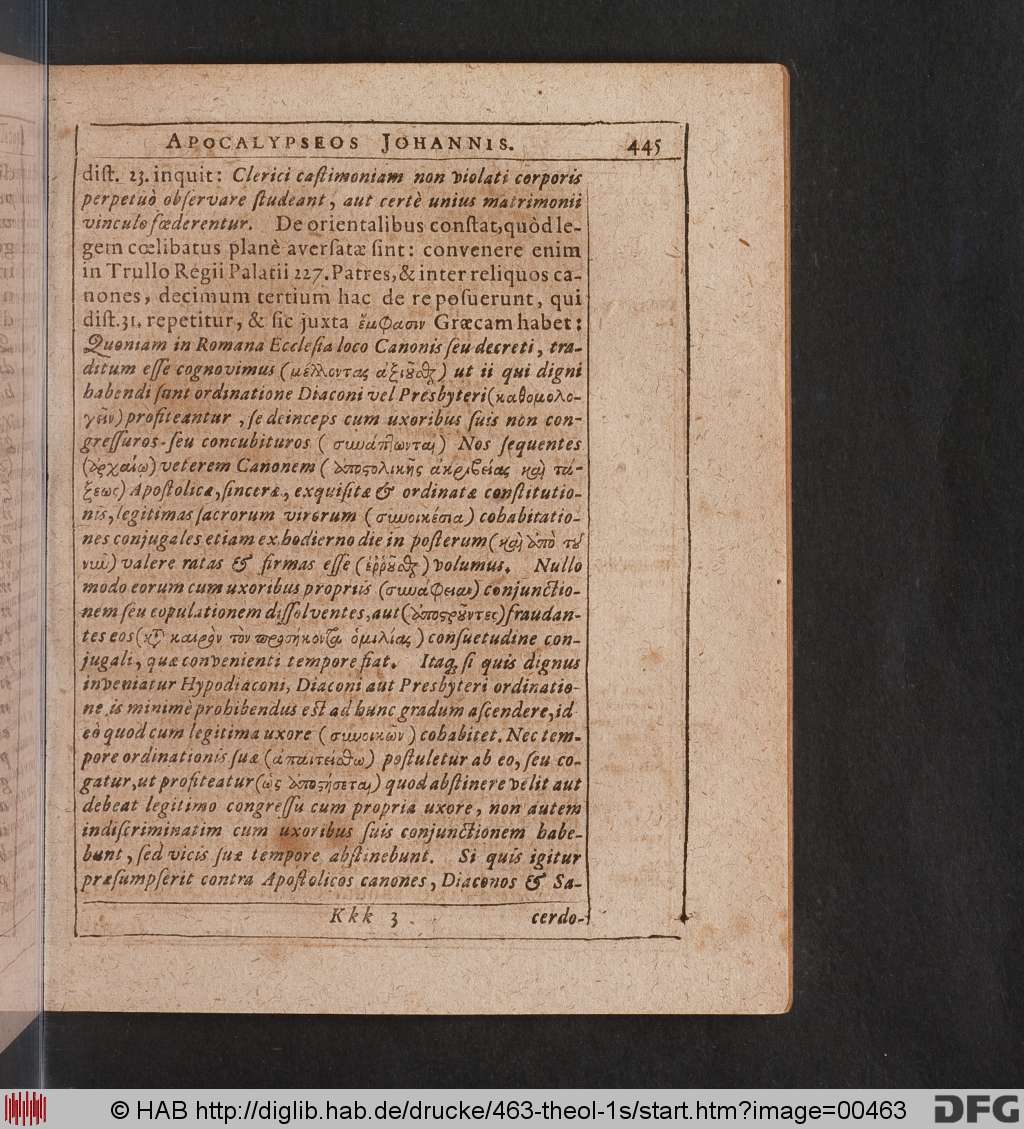 APOCALYPSEOS JOHANNIS. 445
dist. 23. inquit: Clerici castimoniam non violati corporis
perpetuò observare studeant, aut certè unius matrimonii
vinculo fœderentur. De orientalibus constat, quòd le-
gem cœlibatus planè aversatæ sint: convenere enim
in Trullo Regii Palatii 227. Patres, & inter reliquos ca-
nones, decimum tertium hac de re posuerunt, qui
dist. 31. repetitur, & sic juxta ἔμφασιν Græcam habet:
Quoniam in Romana Ecclesia loco Canonis seu decreti, tra-
ditum esse cognovimus (μέλλοντας ἀξιοῦσθαι) ut ii qui digni
habendi sunt ordinatione Diaconi vel Presbyteri (καθομολο-
γεῖν) profiteantur, se deinceps cum uxoribus suis non con-
gressuros seu concubituros (συνάπτωνται) Nos sequentes
(ἀρχαίῳ) veterem Canonem (ἀποστολικῆς ἀκριβείας καὶ τά-
ξεως) Apostolicæ, sinceræ, exquisitæ & ordinatæ constitutio-
nis, legitimas sacrorum virorum (συνοικέσια) cohabitatio-
nes conjugales etiam ex hodierno die in posterum (καὶ ἀπὸ τοῦ
νῦν) valere ratas & firmas esse (ἐῤῥῶσθαι) volumus. Nullo
modo eorum cum uxoribus propriis (συνάφειαν) conjunctio-
nem seu copulationem dissolventes, aut (ἀποστεροῦντες) fraudan-
tes eos (κατὰ καιρὸν τὸν προσήκοντα ὁμιλίας) consuetudine con-
jugali, quæ convenienti tempore fiat. Itaq; si quis dignus
inveniatur Hypodiaconi, Diaconi aut Presbyteri ordinatio-
ne, is minimè prohibendus est ad hunc gradum ascendere, id
eò quod cum legitima uxore (συνοικῶν) cohabitet. Nec tem-
pore ordinationis suæ (ἀπαιτείσθω) postuletur ab eo, seu co-
gatur, ut profiteatur (ὡς ἀποστήσεται) quod abstinere velit aut
debeat legitimo congressu cum propria uxore, non autem
indiscriminatim cum uxoribus suis conjunctionem habe-
bunt, sed vicis suæ tempore abstinebunt. Si quis igitur
præsumpserit contra Apostolicos canones, Diaconos & Sa-
Kkk 3 cerdo-
© HAB http://diglib.hab.de/drucke/463-theol-1s/start.htm?image=00463 DFG